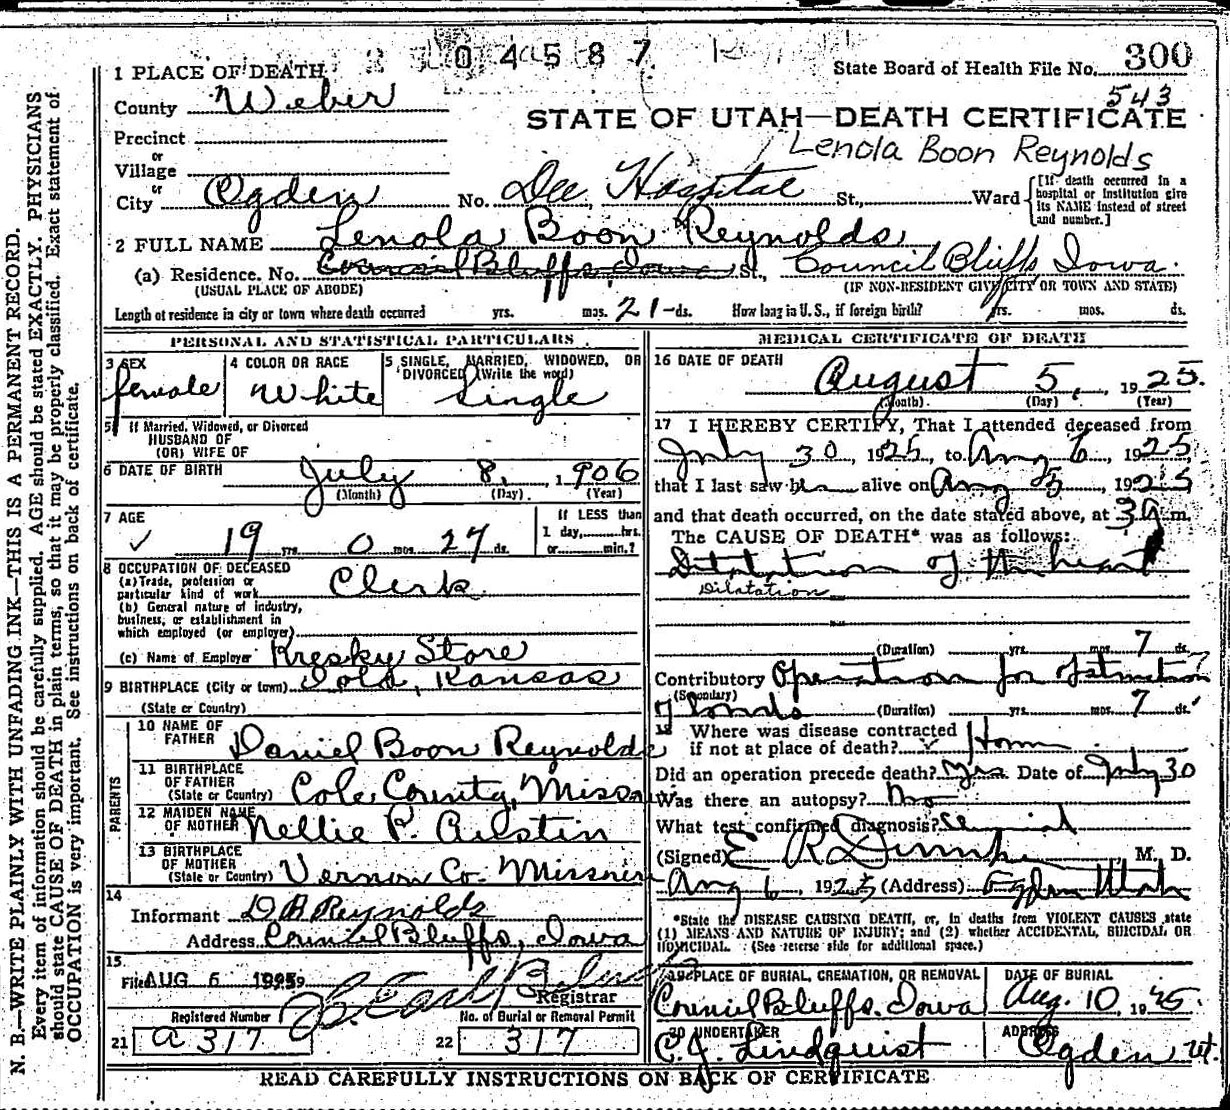 04587
300
State Board of Health File No.
543
1 PLACE OF DEATH
County Weber
STATE OF UTAH—DEATH CERTIFICATE
Precinct
Lenola Boon Reynolds
or
Village
or
City Ogden No. Dee Hospital St., Ward [If death occurred in a hospital or institution give its NAME instead of street and number.]
2 FULL NAME Lenola Boon Reynolds
(a) Residence. No. Council Bluffs, Iowa St., Council Bluffs, Iowa.
(USUAL PLACE OF ABODE) (IF NON-RESIDENT GIVE CITY OR TOWN AND STATE)
Length of residence in city or town where death occurred yrs. mos. 21 ds. How long in U. S., if foreign birth? yrs. mos. ds.
PERSONAL AND STATISTICAL PARTICULARS
3 SEX female
4 COLOR OR RACE White
5 SINGLE, MARRIED, WIDOWED, OR DIVORCED (Write the word) Single
5a If Married, Widowed, or Divorced
HUSBAND OF
(OR) WIFE OF
6 DATE OF BIRTH July 8, 1906
(Month) (Day) (Year)
7 AGE 19 yrs. 0 mos. 27 ds.
If LESS than
1 day, hrs.
or min.?
8 OCCUPATION OF DECEASED
(a) Trade, profession or
particular kind of work Clerk
(b) General nature of industry,
business, or establishment in
which employed (or employer)
(c) Name of Employer Kresky Store
9 BIRTHPLACE (City or town) Iola, Kansas
(State or Country)
PARENTS
10 NAME OF
FATHER Daniel Boon Reynolds
11 BIRTHPLACE
OF FATHER
(State or Country) Cole County, Missouri
12 MAIDEN NAME
OF MOTHER Nellie P. Austin
13 BIRTHPLACE
OF MOTHER
(State or Country) Vernon Co. Missouri
14
Informant D B Reynolds
Address Council Bluffs, Iowa
15
Filed AUG 6 1925
Registrar
Registered Number No. of Burial or Removal Permit
21 a 317 22 317
MEDICAL CERTIFICATE OF DEATH
16 DATE OF DEATH
August 5, 1925.
(Month) (Day) (Year)
17 I HEREBY CERTIFY, That I attended deceased from
July 30, 1925, to Aug 6, 1925
that I last saw h alive on Aug 5, 1925
and that death occurred, on the date stated above, at 3 a m.
The CAUSE OF DEATH* was as follows:
Dilatation of the heart
Dilatation
(Duration) yrs. mos. 7 ds.
Contributory Operation for
(Secondary)
(Duration) yrs. mos. 7 ds.
18 Where was disease contracted
if not at place of death? Home
Did an operation precede death? yes Date of July 30
Was there an autopsy? No
What test confirmed diagnosis? Clinical
(Signed) E R M. D.
Aug 6, 1925 (Address) Ogden Utah
*State the DISEASE CAUSING DEATH, or, in deaths from VIOLENT CAUSES state
(1) MEANS AND NATURE OF INJURY; and (2) whether ACCIDENTAL, SUICIDAL OR
HOMICIDAL. (See reverse side for additional space.)
19 PLACE OF BURIAL, CREMATION, OR REMOVAL
Council Bluffs, Iowa
DATE OF BURIAL
Aug. 10, 1925.
20 UNDERTAKER
C. J. Lindquist
ADDRESS
Ogden Ut.
READ CAREFULLY INSTRUCTIONS ON BACK OF CERTIFICATE
N. B.—WRITE PLAINLY WITH UNFADING INK—THIS IS A PERMANENT RECORD.
Every item of information should be carefully supplied. AGE should be stated EXACTLY. PHYSICIANS
should state CAUSE OF DEATH in plain terms, so that it may be properly classified. Exact statement of
OCCUPATION is very important. See instructions on back of certificate.